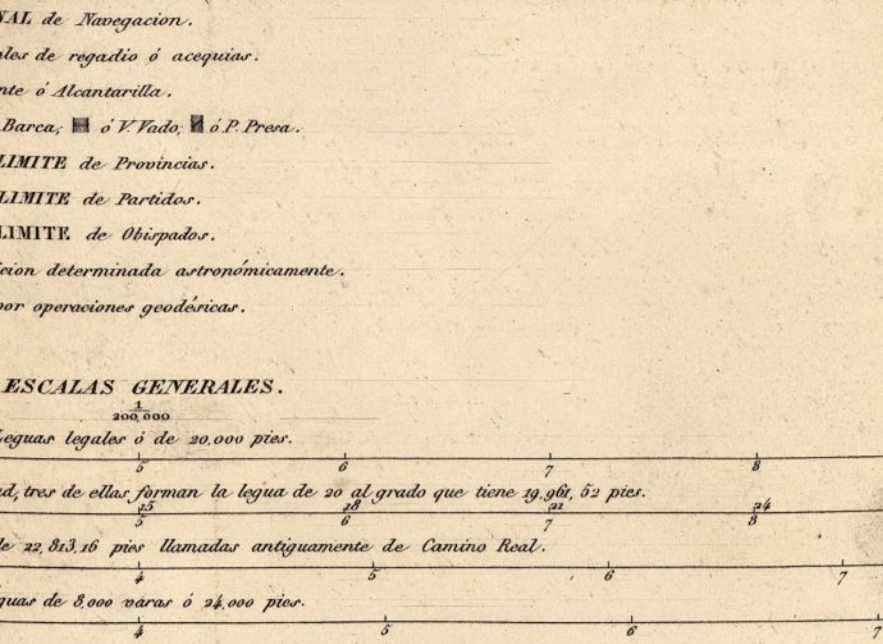 NAL de Navegacion.
ales de regadio ó acequias.
nte ó Alcantarilla.
Barca; ó V. Vado; ó P. Presa.
LIMITE de Provincias.
LIMITE de Partidos.
LIMITE de Obispados.
icion determinada astronómicamente.
por operaciones geodésicas.
ESCALAS GENERALES.
1
200,000
Leguas legales ó de 20,000 pies.
5 6 7 8
ad, tres de ellas forman la legua de 20 al grado que tiene 19,961, 52 pies.
15 18 21 24
5 6 7 8
de 22,813,16 pies llamadas antiguamente de Camino Real.
4 5 6 7
guas de 8,000 varas ó 24,000 pies.
4 5 6 7